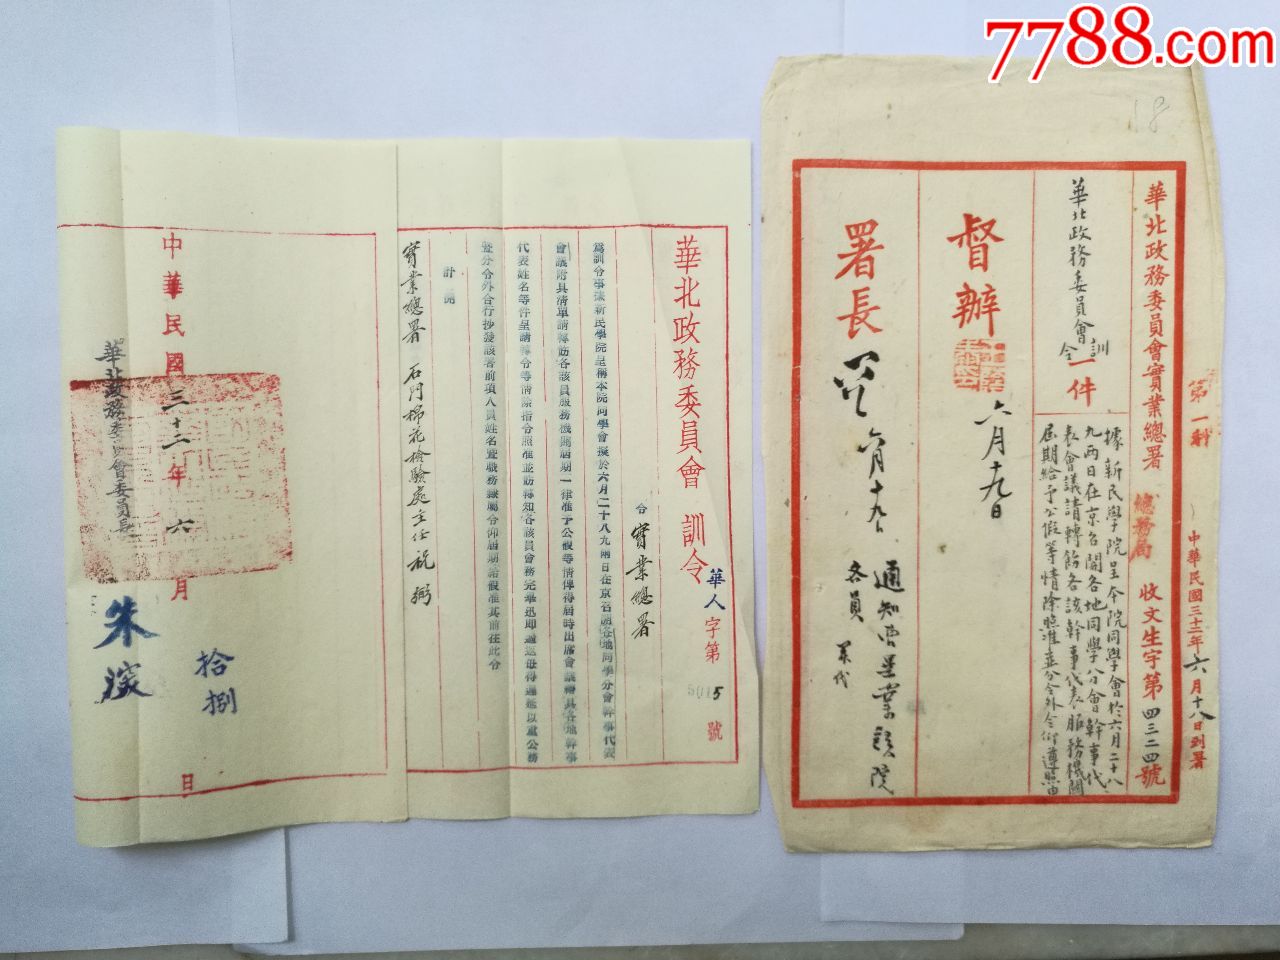 7788.com
18
第一科
中華民國三十二年六月十八日到署
華北政務委員會實業總署 總務局 收文生字第四三二四號
華北政務委員會訓令一件
據新民學院呈本院同學會於六月二十八
九兩日在京召開各地同學分會幹事代
表會議請轉飭各該幹事代表服務機關
屆期給予公假等情除照准並分令外令仰遵照由
督辦
六月十九日
署長
六月十九
通知
各員
華北政務委員會 訓令
華人字第5015號
令實業總署
為訓令事據新民學院呈稱本院同學會擬於六月二十八九兩日在京召開各地同學分會幹事代表
會議附具清單請轉飭各該員服務機關屆期一律准予公假等情俾得屆時出席會議繕具各地幹事
代表姓名等件呈請轉令等情除指令照准並飭轉知各該員會務完畢迅即遄返毋得逾延以重公務
暨分令外合行抄發該署前項人員姓名暨職務隸屬令仰屆期給假准其前往此令
計開
實業總署 石門棉花檢驗處主任 祝弼
中華民國三十二年六月 日
拾捌
華北政務委員會委員長
朱深